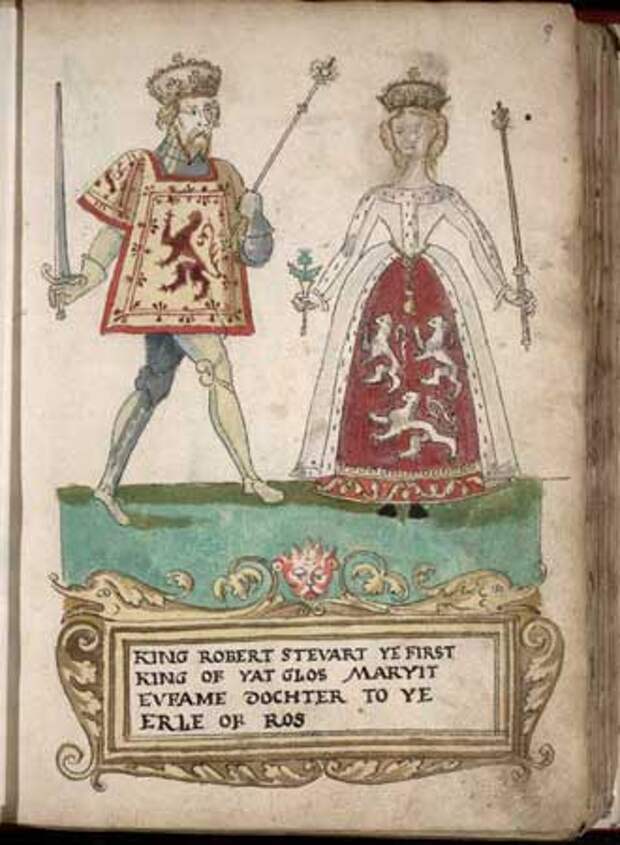 9
KING ROBERT STEVART YE FIRST
KING OF YAT GLOS MARYIT
EVFAME DOCHTER TO YE
ERLE OF ROS